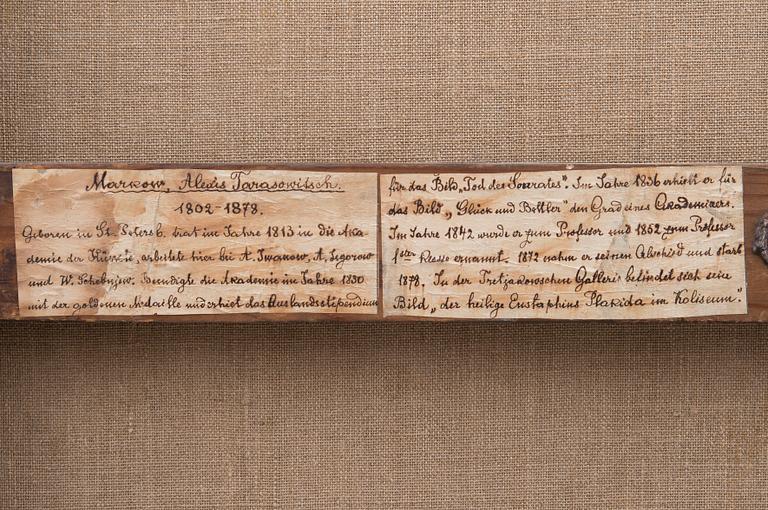 Markow, Alexis Tarasowitsch.
1802-1878.
Geboren in St. Petersb. trat im Jahre 1813 in die Aka-
demie der Künste, arbeitete hier bei A. Iwanow, A. Jegorow
und W. Schebujew. Beendigte die Akademie im Jahre 1830
mit der goldenen Medaille und erhielt das Auslandsstipendium
für das Bild „Tod des Sokrates“. Im Jahre 1836 erhielt er für
das Bild „Glück und Bettler“ den Grad eines Akademikers.
Im Jahre 1842 wurde er zum Professor und 1852 zum Professor
1ster Klasse ernannt. 1872 nahm er seinen Abschied und starb
1878. In der Tretjakowschen Gallerie befindet sich seine
Bild „der heilige Eustaphius Plakida im Koliseum“.